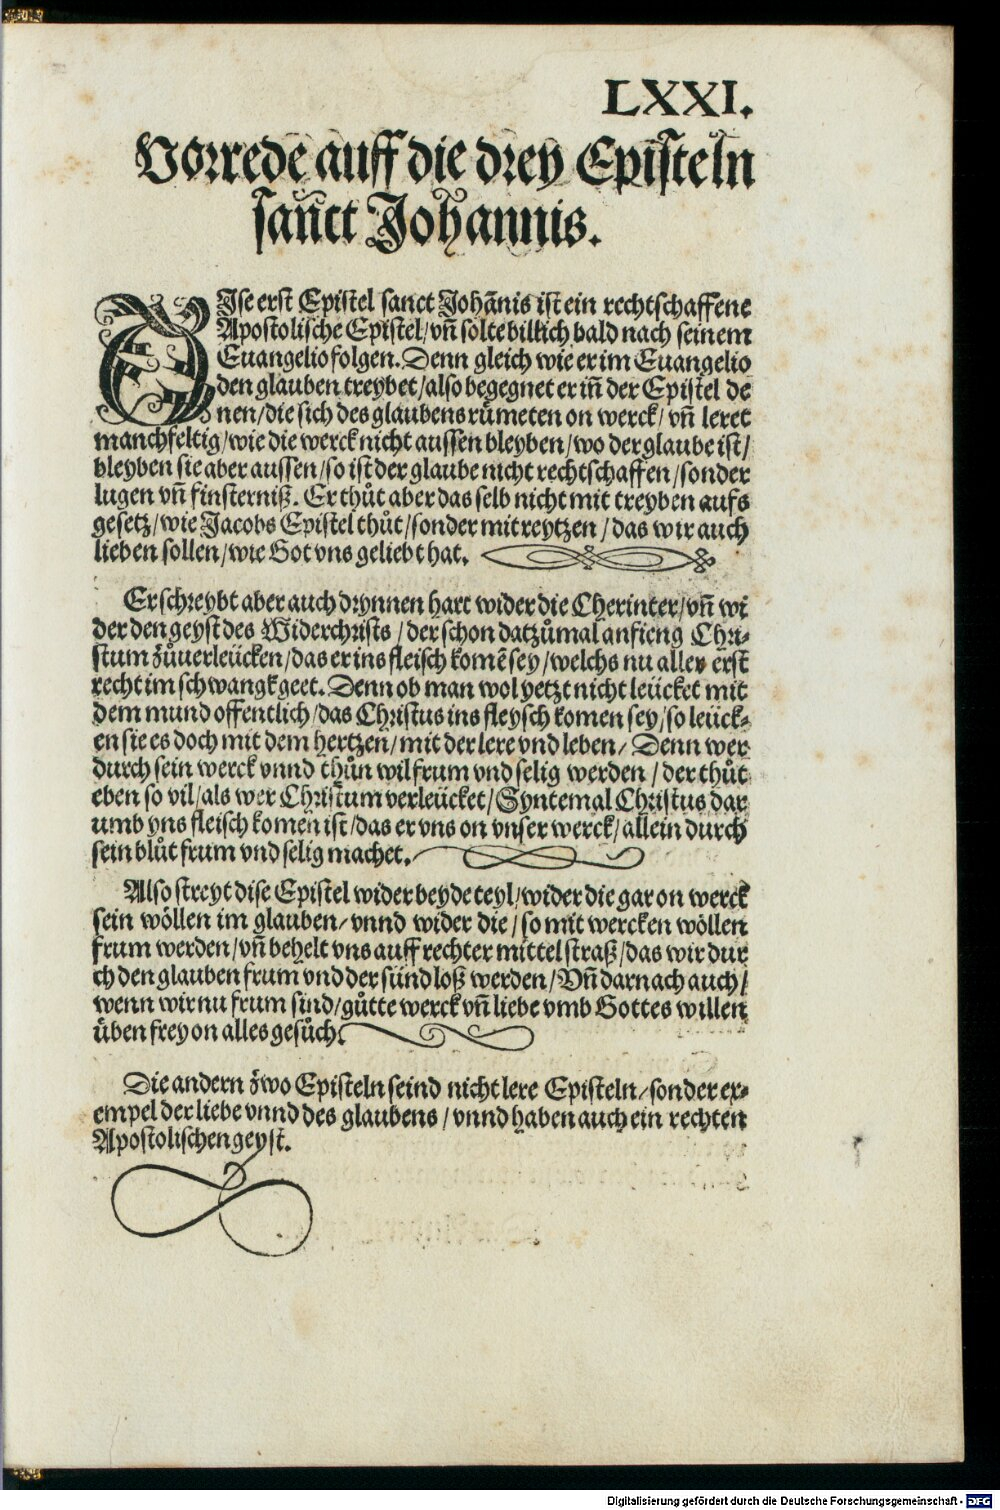 LXXI.
Vorrede auff die drey Episteln
sanct Johannis.
DIse erst Epistel sanct Johãnis ist ein rechtschaffene
Apostolische Epistel/vñ solte billich bald nach seinem
Euangelio folgen. Denn gleich wie er im Euangelio
den glauben treybet/also begegnet er iñ der Epistel de
nen/die sich des glaubens růmeten on werck/vñ leret
manchfeltig/wie die werck nicht aussen bleyben/wo der glaube ist/
bleyben sie aber aussen/so ist der glaube nicht rechtschaffen/sonder
lugen vñ finsterniß. Er thůt aber das selb nicht mit treyben aufs
gesetz/wie Jacobs Epistel thůt/sonder mit reytzen/das wir auch
lieben sollen/wie Got vns geliebt hat.
Er schreybt aber auch drynnen hart wider die Cherinter/vñ wi
der den geyst des Widerchrists/der schon datzůmal anfieng Chri-
stum zůuerleücken/das er ins fleisch komẽ sey/welchs nu aller erst
recht im schwangk geet. Denn ob man wol yetzt nicht leücket mit
dem mund offentlich/das Christus ins fleysch komen sey/so leück-
en sie es doch mit dem hertzen/mit der lere vnd leben/Denn wer
durch sein werck vnnd thůn wil frum vnd selig werden/der thůt
eben so vil/als wer Christum verleücket/Syntemal Christus dar
umb yns fleisch komen ist/das er vns on vnser werck/allein durch
sein blůt frum vnd selig machet.
Also streyt dise Epistel wider beyde teyl/wider die gar on werck
sein wöllen im glauben/vnnd wider die/so mit wercken wöllen
frum werden/vñ behelt vns auff rechter mittel straß/das wir dur
ch den glauben frum vnd der sünd loß werden/Vñ darnach auch/
wenn wir nu frum sind/gůtte werck vñ liebe vmb Gottes willen
üben frey on alles gesůch.
Die andern zwo Episteln seind nicht lere Episteln/sonder ex-
empel der liebe vnnd des glaubens/vnnd haben auch ein rechten
Apostolischen geyst.
Digitalisierung gefördert durch die Deutsche Forschungsgemeinschaft - DFG